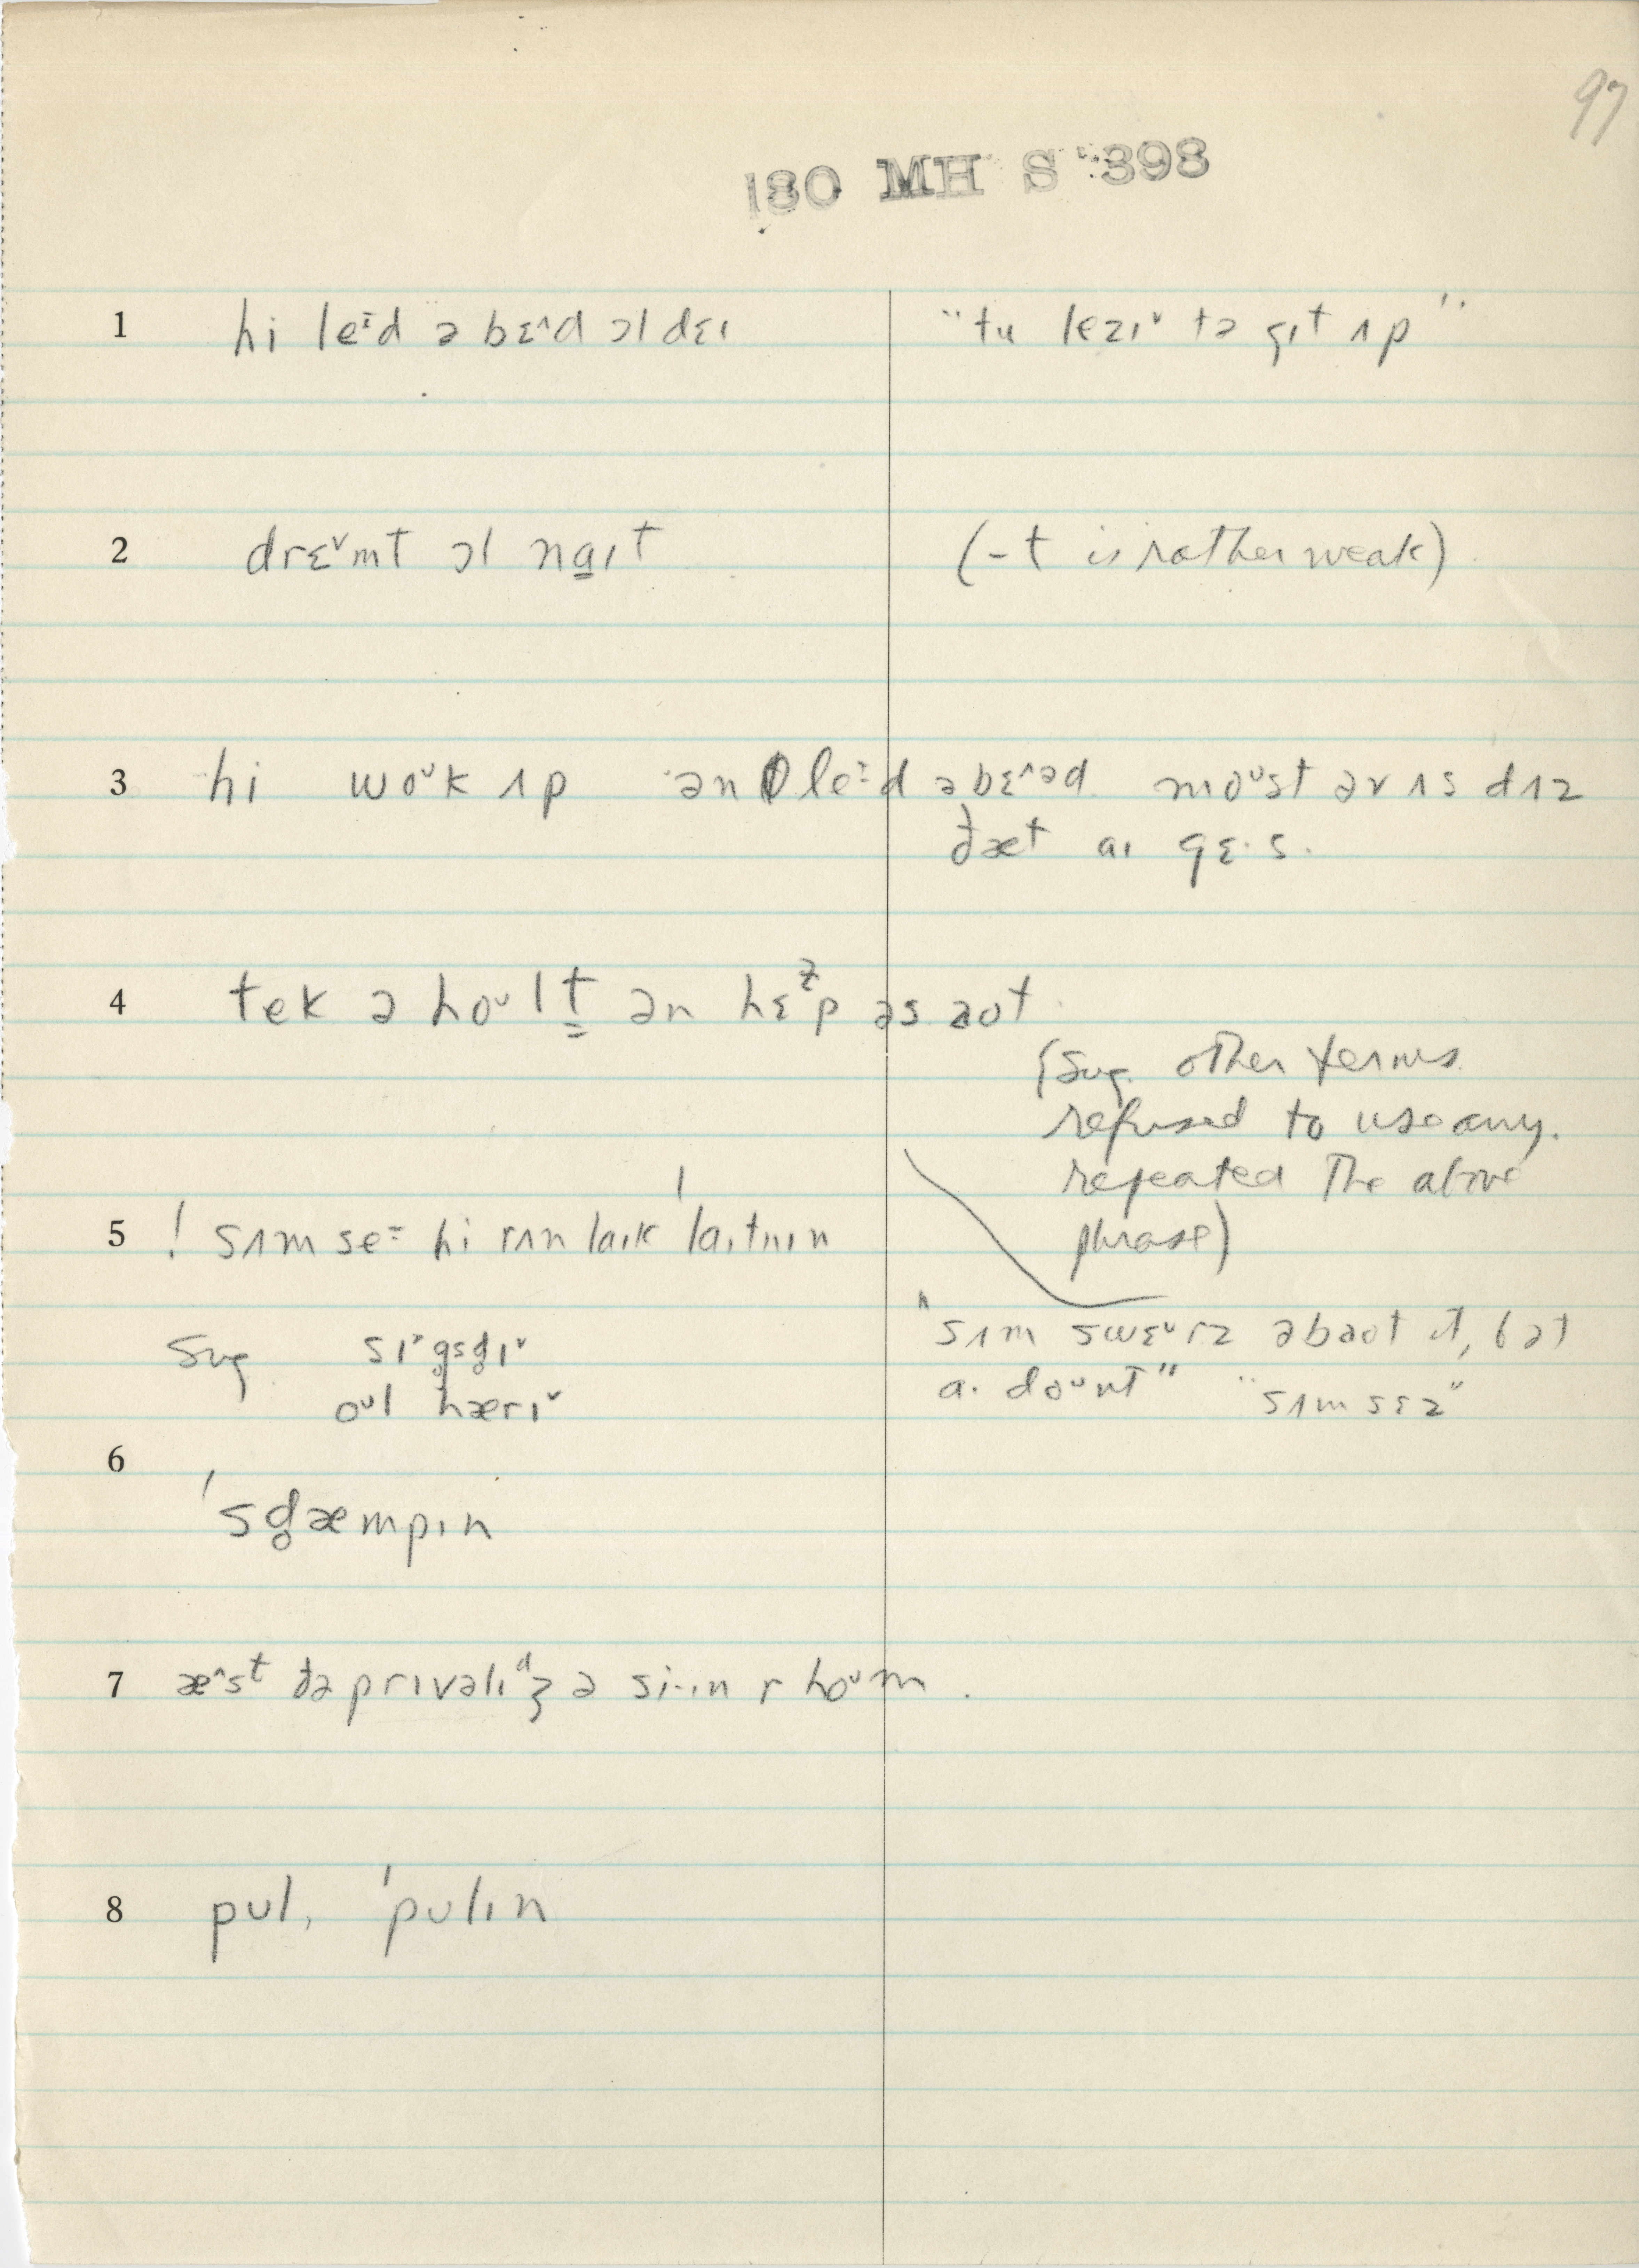 97
180 MH S 398
1 hi leᶦd ə bɛ^d ɔl dɛɪ "tu lezɪˇ tə gɪt ʌp"
2 drɛˇmt ɔl na̱ɪt (-t is rather weak)
3 hi woᵘk ʌp ən leᶦd əbɛ^əd moᵘst əv ʌs dʌz
ðæt aɪ gɛ·s.
4 tek ə hoᵘlt̳ ən hɛp əs aʊt
(Sug. other terms
refused to use any.
repeated the above
phrase)
5 ! sʌm seᶦ hi rʌn laɪk ˈlaɪtnɪn
"sʌm swɛˇrz əbaʊt ɪt, bət
aɪ doᵘnt" "sʌm sɛz"
Sug sɪˇg̥sd̥ɪˇ
oᵘl hærɪˇ
6
ˈsg̥æmpɪn
7 æ^sᵗ ðə prɪvəlɪᵈʒ ə si·ɪn r hoᵘm.
8 pʊl, ˈpʊlɪn